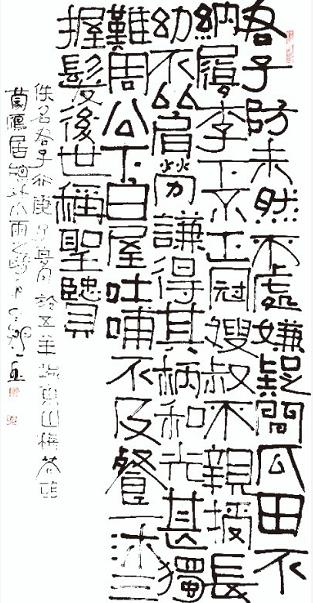 君子防未然不處嫌疑間瓜田不
納履李下不正冠嫂叔不親授長
幼不比肩勞謙得其柄和光甚獨
難周公下白屋吐哺不及餐一沐三
握髮後世稱聖賢
佚名君子行庚寅於五羊山梅花
居小雨之